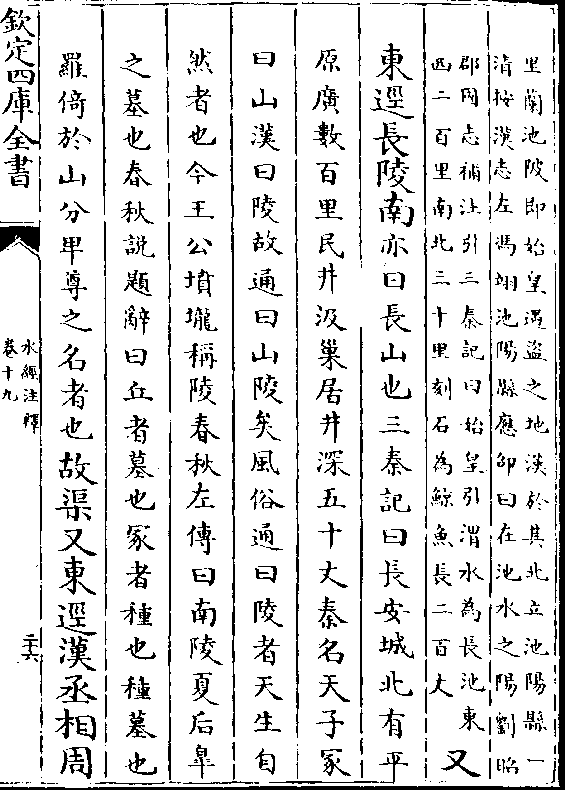 里蘭池陂即始皇遇盜之地漢於其北立池陽縣一
清按漢志左馮翊池陽縣應劭曰在池水之陽劉昭
郡國志補注引三秦記曰始皇引渭水為長池東
西二百里南北三十里刻石為鯨魚長二百丈
又
東逕長陵南亦曰長山也三秦記曰長安城北有平
原廣數百里民井汲巢居井深五十丈秦名天子冢
曰山漢曰陵故通曰山陵矣風俗通曰陵者天生自
然者也今王公墳壠稱陵春秋左傳曰南陵夏后臯
之墓也春秋說題辭曰丘者墓也冢者種也種墓也
羅倚於山分卑尊之名者也故渠又東逕漢丞相周
欽定四庫全書
水經注釋
卷十九
二十六